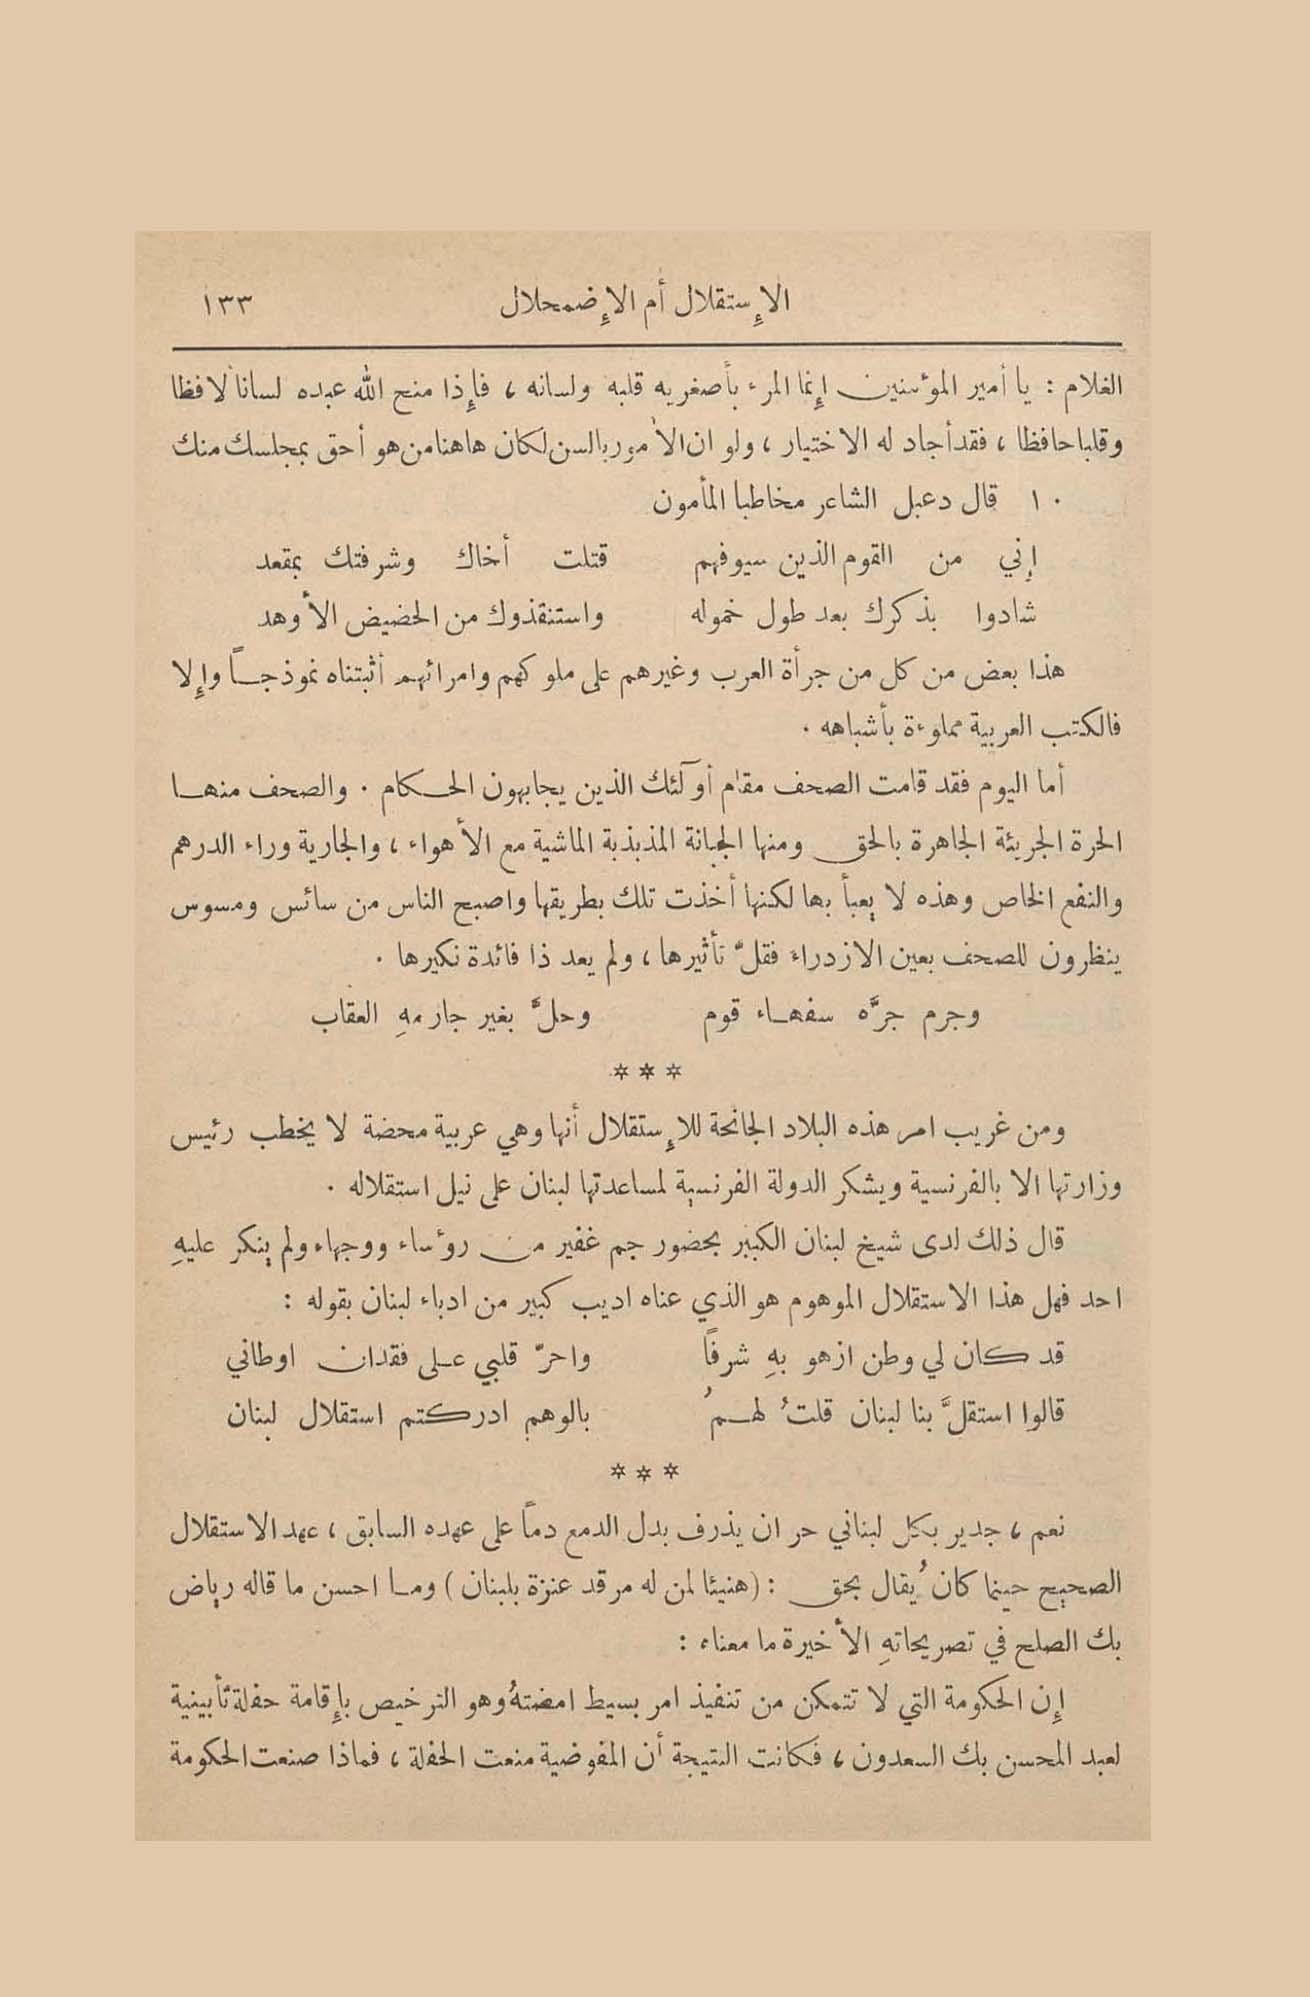 الإستقلال أم الإضمحلال ١٣٣
الغلام : يا أمير المؤمنين إنما المرء بأصغريه قلبه ولسانه ، فإذا منح الله عبده لسانا لافظا
وقلبا حافظا ، فقد أجاد له الاختيار ، ولو ان الأمور بالسن لكان هاهنا من هو أحق بمجلسك منك
١٠ قال دعبل الشاعر مخاطبا المأمون
إني من القوم الذين سيوفهم قتلت أخاك وشرفتك بمقعد
شادوا بذكرك بعد طول خموله واستنقذوك من الحضيض الأوهد
هذا بعض من كل من جرأة العرب وغيرهم على ملوكهم وامرائهم أثبتناه نموذجاً وإلا
فالكتب العربية مملوءة بأشباهه .
أما اليوم فقد قامت الصحف مقام أولئك الذين يجابهون الحكام . والصحف منها
الحرة الجريئة الجاهرة بالحق ومنها الجبانة المذبذبة الماشية مع الأهواء ، والجارية وراء الدرهم
والنفع الخاص وهذه لا يعبأ بها لكنها أخذت تلك بطريقها واصبح الناس من سائس ومسوس
ينظرون للصحف بعين الازدراء فقلّ تأثيرها ، ولم يعد ذا فائدة نكيرها .
وجرم جرَّه سفهاء قوم وحلَّ بغير جارمهِ العقاب
* * *
ومن غريب امر هذه البلاد الجانحة للإستقلال أنها وهي عربية محضة لا يخطب رئيس
وزارتها الا بالفرنسية ويشكر الدولة الفرنسية لمساعدتها لبنان على نيل استقلاله .
قال ذلك لدى شيخ لبنان الكبير بحضور جم غفير من رؤساء ووجهاء ولم ينكر عليهِ
احد فهل هذا الاستقلال الموهوم هو الذي عناه اديب كبير من ادباء لبنان بقوله :
قد كان لي وطن ازهو بهِ شرفاً واحرّ قلبي على فقدان اوطاني
قالوا استقلَّ بنا لبنان قلتُ لهمُ بالوهم ادركتم استقلال لبنان
* * *
نعم ، جدير بكل لبناني حر ان يذرف بدل الدمع دماً على عهده السابق ، عهد الاستقلال
الصحيح حينما كان يُقال بحق : (هنيئا لمن له مرقد عنزة بلبنان ) وما احسن ما قاله رياض
بك الصلح في تصريحاتهِ الأخيرة ما معناه :
إن الحكومة التي لا تتمكن من تنفيذ امر بسيط امضتهُ وهو الترخيص بإقامة حفلة تأبينية
لعبد المحسن بك السعدون ، فكانت النتيجة أن المفوضية منعت الحفلة ، فماذا صنعت الحكومة